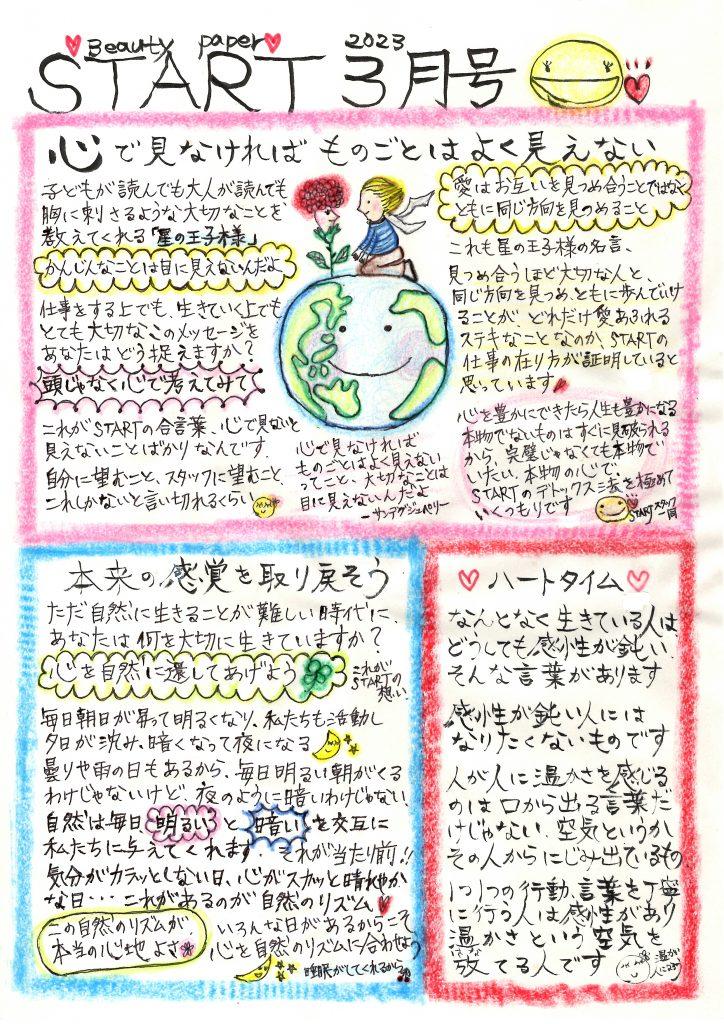 Beauty paper
2023
START 3月号
心で見なければ ものごとはよく見えない
子どもが読んでも大人が読んでも
胸に刺さるような大切なことを
教えてくれる「星の王子様」
かんじんなことは目に見えないんだよ
仕事をする上でも、生きていく上でも
とても大切なこのメッセージを
あなたはどう捉えますか?
頭じゃなく心で考えてみて
これがSTARTの合言葉、心で見ないと
見えないことばかりなんです.
自分に望むこと、スタッフに望むこと、
これしかないと言い切れるくらい
心で見なければ
ものごとはよく見えない
ってこと、大切なことは
目に見えないんだよ
ーサンテグジュペリー
愛はお互いを見つめ合うことではなく
ともに同じ方向を見つめること
これも星の王子様の名言、
見つめ合うほど大切な人と、
同じ方向を見つめ、ともに歩んでいけ
ることが どれだけ愛あふれる
ステキなことなのか、STARTの
仕事の在り方が証明していると
思っています
心を豊かにできたら人生も豊かになる
本物でないものはすぐに見破られる
から、完璧じゃなくても本物で
いたい、本物の心で、
STARTのデトックス法を極めて
いくつもりです
STARTスタッフ
一同
本来の感覚を取り戻そう
ただ自然に生きることが難しい時代に、
あなたは何を大切に生きていますか?
心を自然に還してあげよう
これが
STARTの
想い
毎日朝日が昇って明るくなり、私たちも活動し
夕日が沈み、暗くなって夜になる
曇りや雨の日もあるから、毎日明るい朝がくる
わけじゃないけど、夜のように暗いわけじゃない、
自然は毎日 明るい と 暗い を交互に
私たちに与えてくれます. それが当り前!!
気分がカラッとしない日、心がスカッと晴れやか
な日… これがあるのが自然のリズム
この自然のリズムが
本当の心地よさ
いろんな日があるからこそ
心を自然のリズムに合わせよう
睡眠がしてくれるから
ハートタイム
なんとなく生きている人は、
どうしても感性が鈍い、
そんな言葉があります
感性が鈍い人には
なりたくないものです
人が人に温かさを感じる
のは口から出る言葉だ
けじゃない、空気というか
その人からにじみ出ているもの
1つ1つの行動、言葉を丁寧
に行う人は感性があり
温かさという空気を
放てる人です
温かい